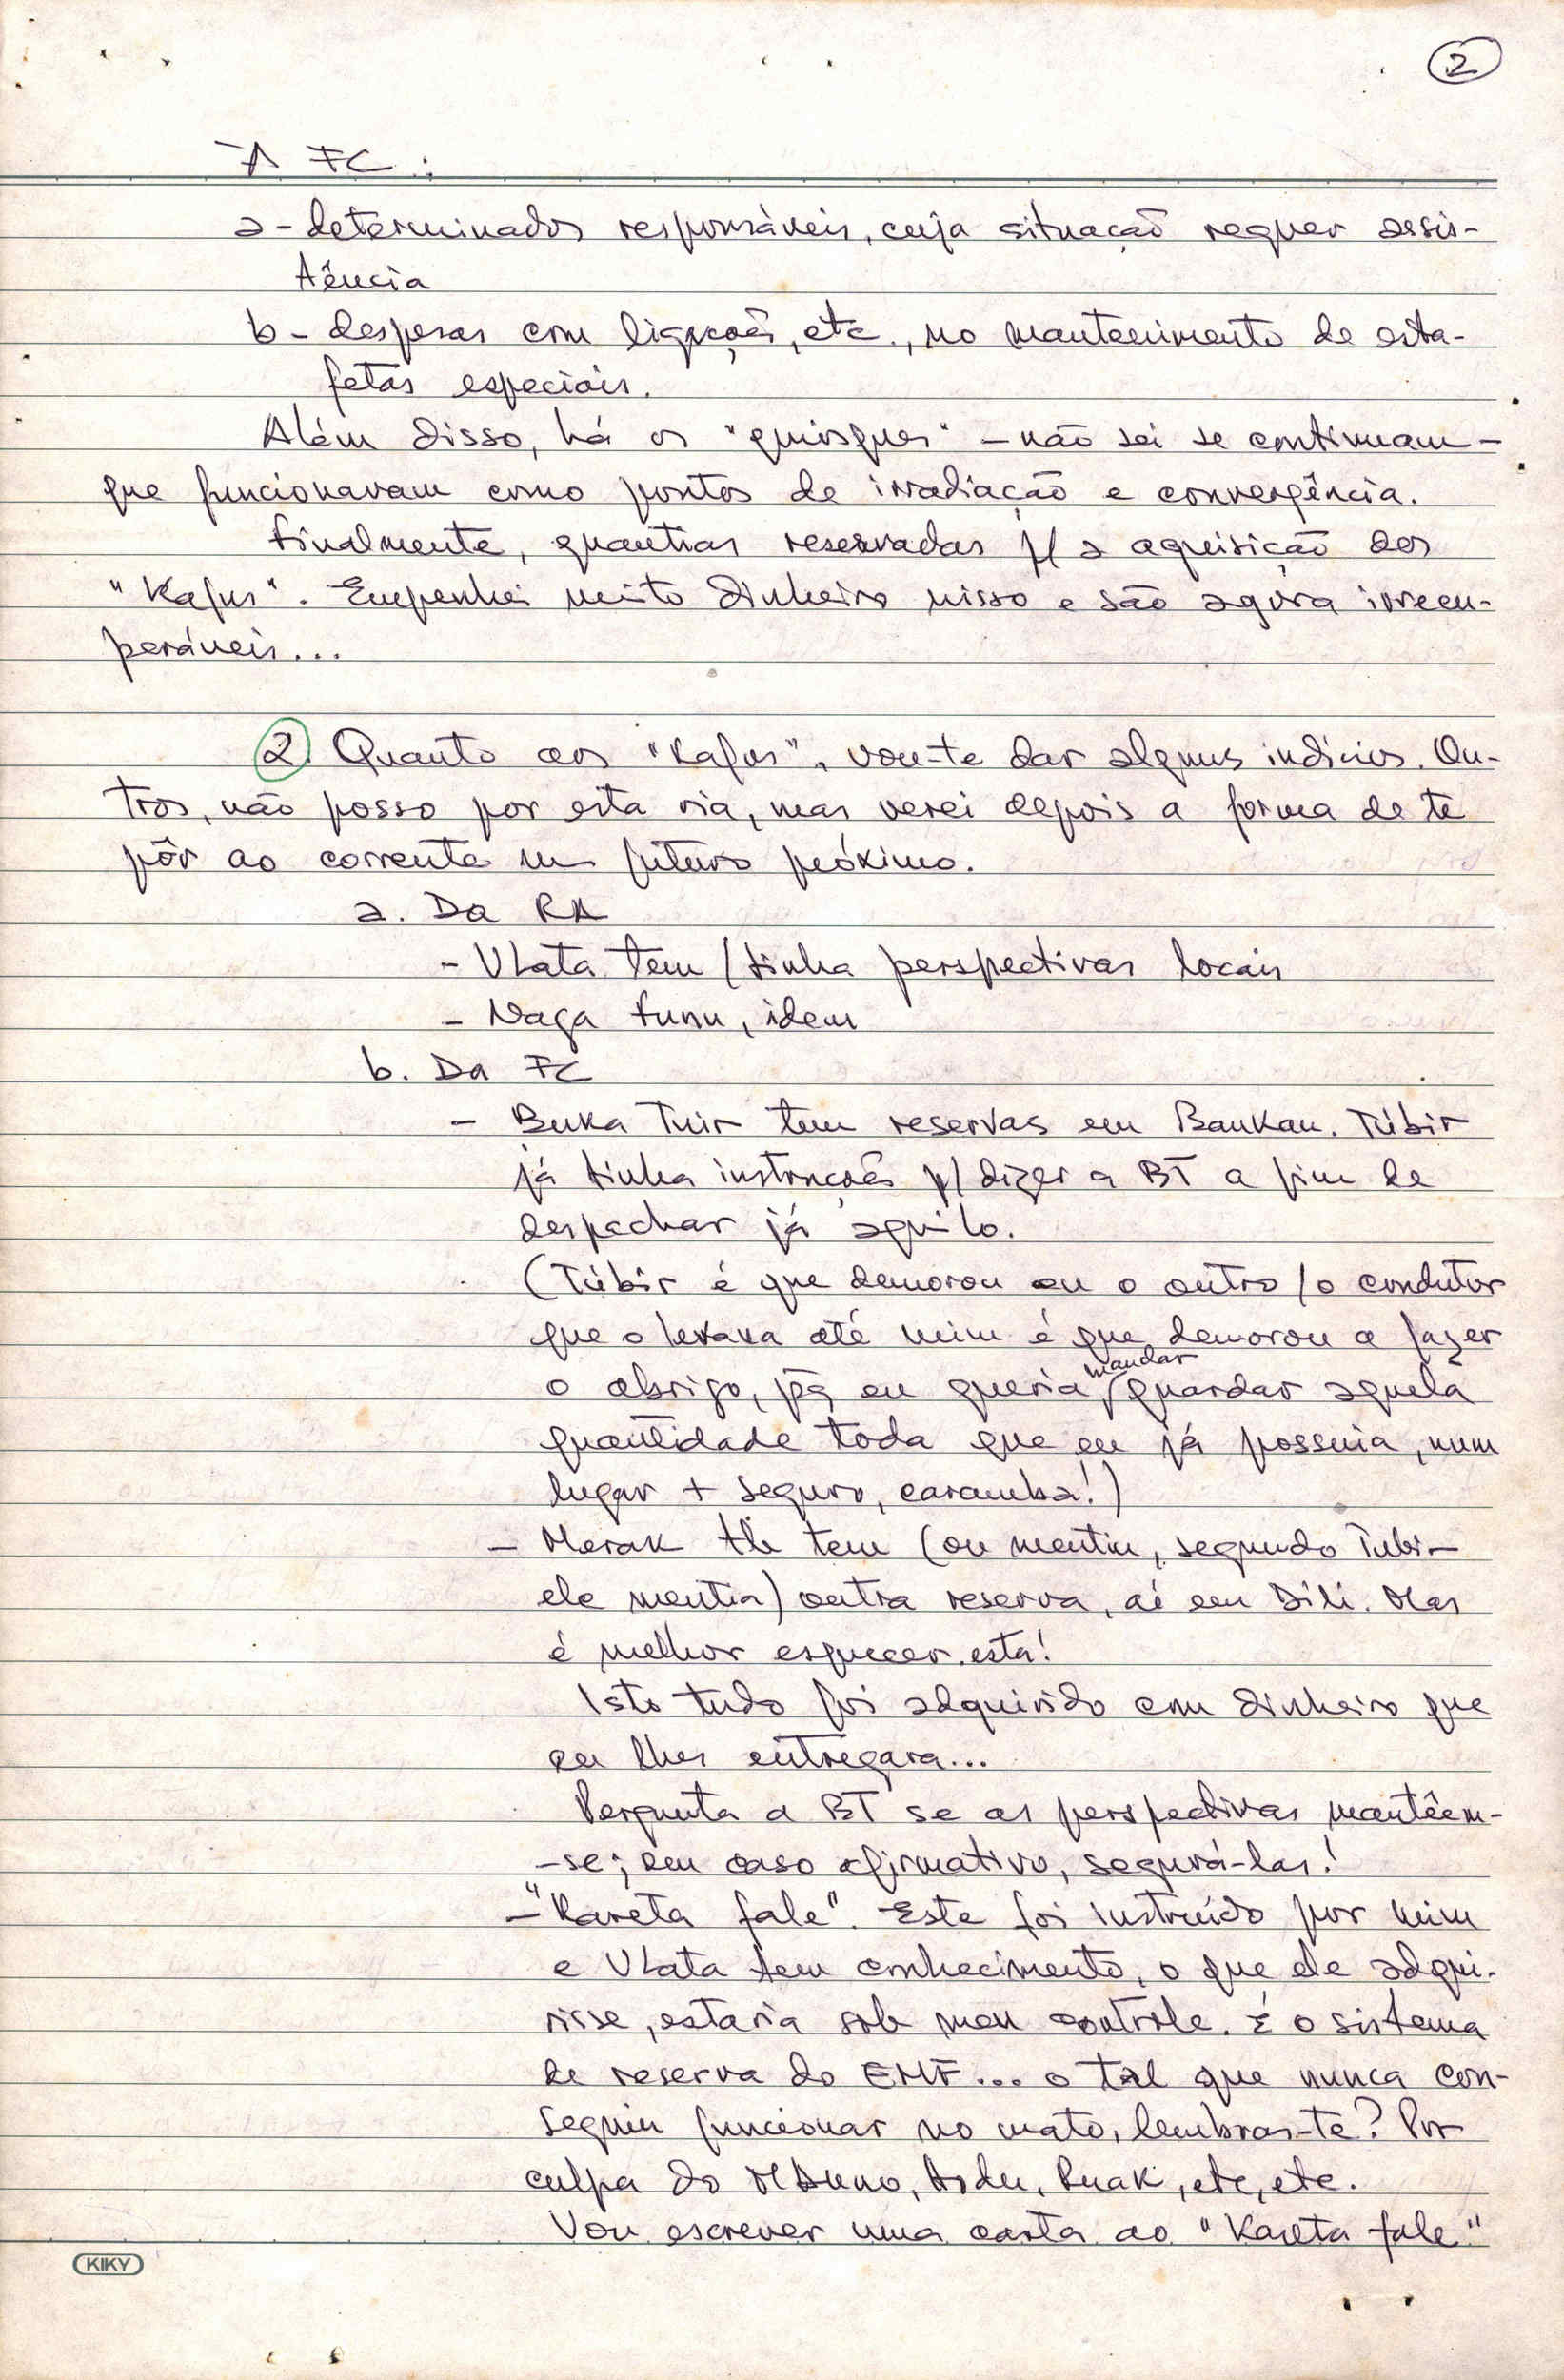 2
À FC:
a - determinados responsáveis, cuja situação requer assis-
tência
b - despesas com ligações, etc., no mantenimento de esta-
fetas especiais.
Além disso, há os "quiosques" - não sei se continuam -
que funcionavam como pontos de irradiação e convergência.
Finalmente, quantias reservadas p/ a aquisição dos
"Kafus". Empenhei muito dinheiro nisso e são agora irrecu-
peráveis...
2. Quanto aos "Kafus", vou-te dar alguns indícios. Ou-
tros, não posso por esta via, mas verei depois a forma de te
pôr ao corrente num futuro próximo.
a. Da RA
- ULata tem / tinha perspectivas locais
- Naga funu, idem
b. Da FC
- Buka Tuir tem reservas em Baukau. Túbir
já tinha instruções p/ dizer a BT a fim de
despachar já aquilo.
(Túbir é que demorou ou o outro / o condutor
que o levava até mim é que demorou a fazer
o abrigo, pq eu queria mandar guardar aquela
quantidade toda que eu já possuia, num
lugar + seguro, caramba!)
- Merak tem (ou mentiu, segundo Tubir
ele mentia) outra reserva, aí em Dili. Mas
é melhor esquecer esta!
Isto tudo foi adquirido com dinheiro que
eu lhes entregara...
Pergunta a BT se as perspectivas mantêem-
-se; em caso afirmativo, segurá-las!
- "Kareta fale". Este foi instruído por mim
e ULata tem conhecimento, o que ele adqui-
risse, estaria sob meu controle. É o sistema
de reserva do EMF... o tal que nunca con-
seguiu funcionar no mato, lembras-te? Por
culpa do MHuno, Ruak, etc, etc.
Vou escrever uma carta ao "Kareta fale"
KIKY